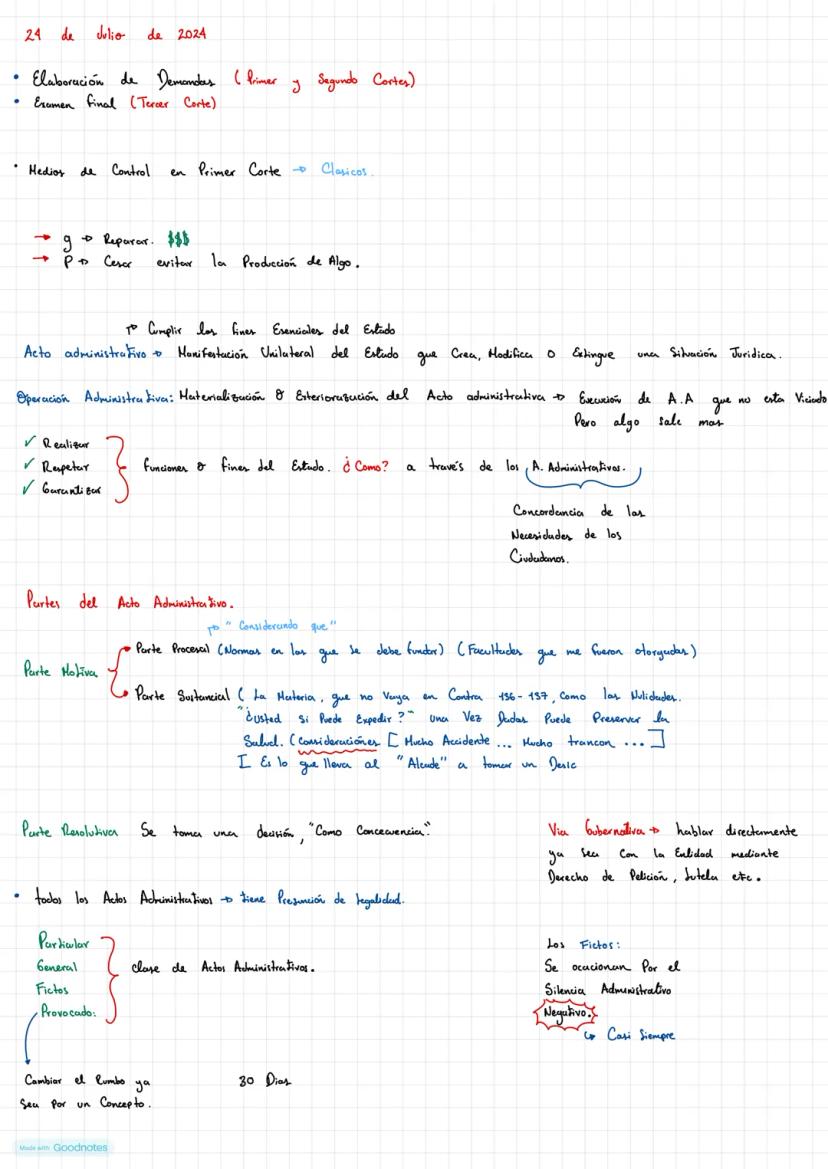 24 de Julio de 2024
• Elaboración de Demandas (Primer y Segundo Cortes)
• Examen final (Tercer Corte)
• Medios de Control en Primer Corte → Clasicos.
→ g → Reparar. $$$
→ P → Cesar evitar la Producción de Algo.
↱ Cumplir los fines Esenciales del Estado
Acto administrativo → Manifestación Unilateral del Estado que Crea, Modifica O Extingue una Situación Juridica.
Operación Administrativa: Materialización & Exteriorazución del Acto administrativa → Execución de A.A que no esta Viciado
Pero algo sale mas
✓ Realizar
✓ Respetar
✓ Garantizar
funciones & fines del Estado. ¿Como? a través de los A. Administrativos.
Concordancia de las
Necesidades de los
Ciudadanos.
Partes del Acto Administrativo.
↱ "Considerando que"
Parte Motiva
Parte Procesal (Normas en las que se debe fundar) (Facultades que me fueron otorgadas)
Parte Sustancial ( La Materia, que no Vaya en Contra 136-137, Como las Nulidades.
"¿Usted Si Puede Expedir?" una Vez Dadas Puede Preservar la
Salud. (Consideraciónes [ Mucho Accidente ... Mucho trancon ... ]
I Es lo que lleva al "Alcade" a tomar un Desic
Parte Resolutiva Se toma una decisión, "Como Concecuencia".
Via Gubernativa → hablar directamente
ya sea Con la Entidad mediante
Derecho de Petición, tutela etc.
• todos los Actos Administrativos → tiene Presunción de legalidad.
Particular
General
Fictos
Provocado:
clase de Actos Administrativos.
Los Fictos:
Se ocacionan Por el
Silencia Administrativo
Negativo.
↳ Casi Siempre
Cambiar el Rumbo ya
Sea por un Concepto.
30 Dias
Made with Goodnotes